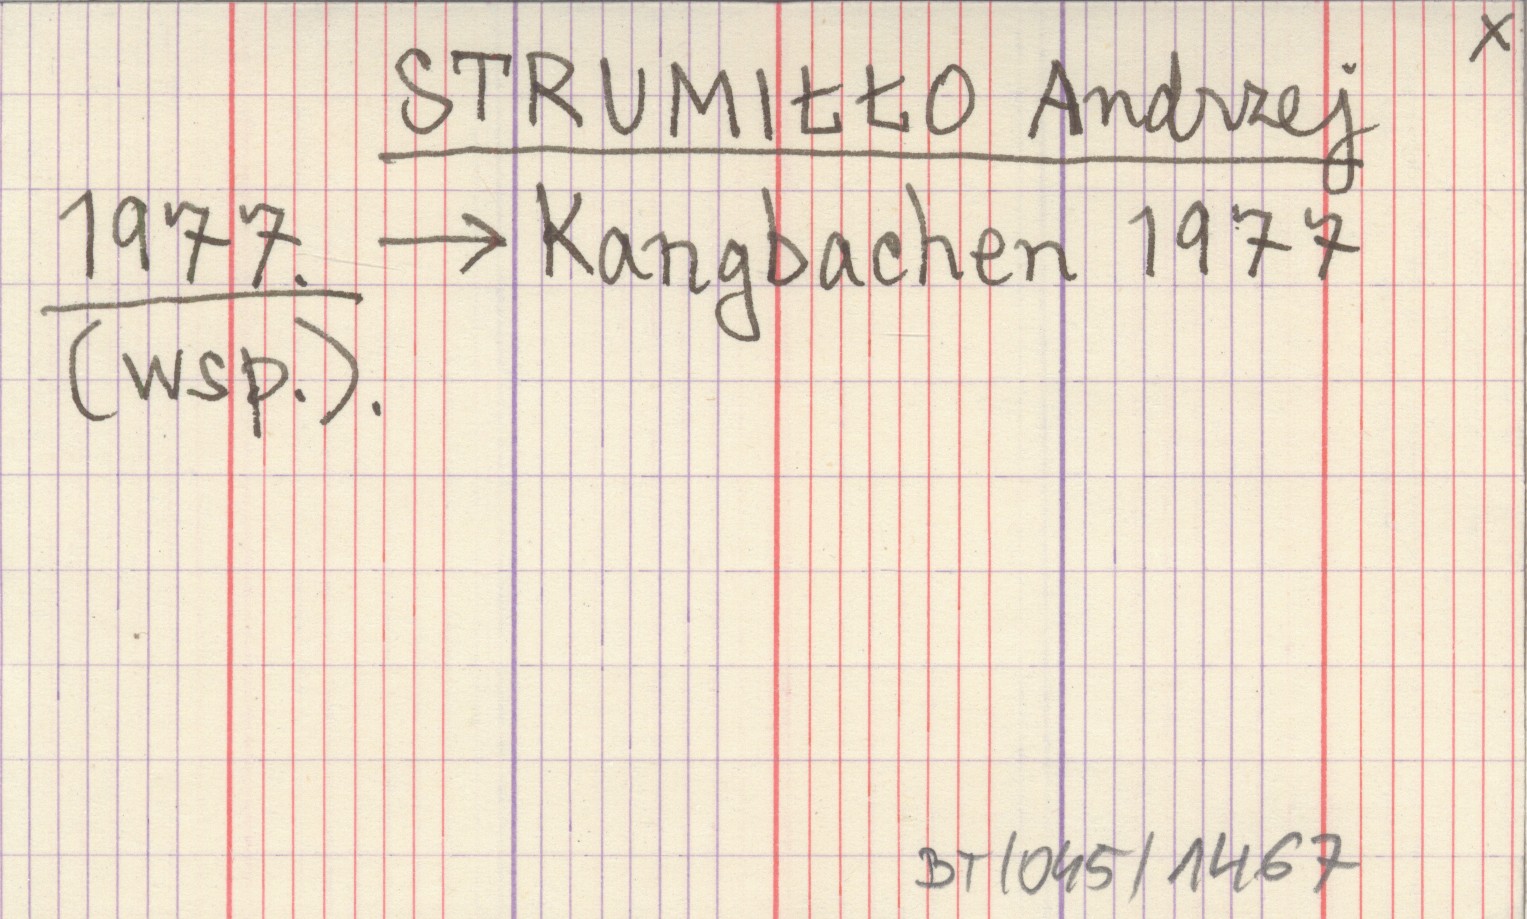 x
STRUMIŁŁO Andrzej
1977. → Kangbachen 1977
(wsp.).
BT/045/1467